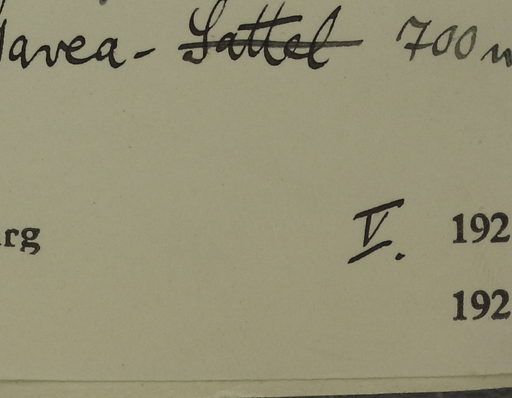 avea- Sattel 700 m
rg V. 192
192